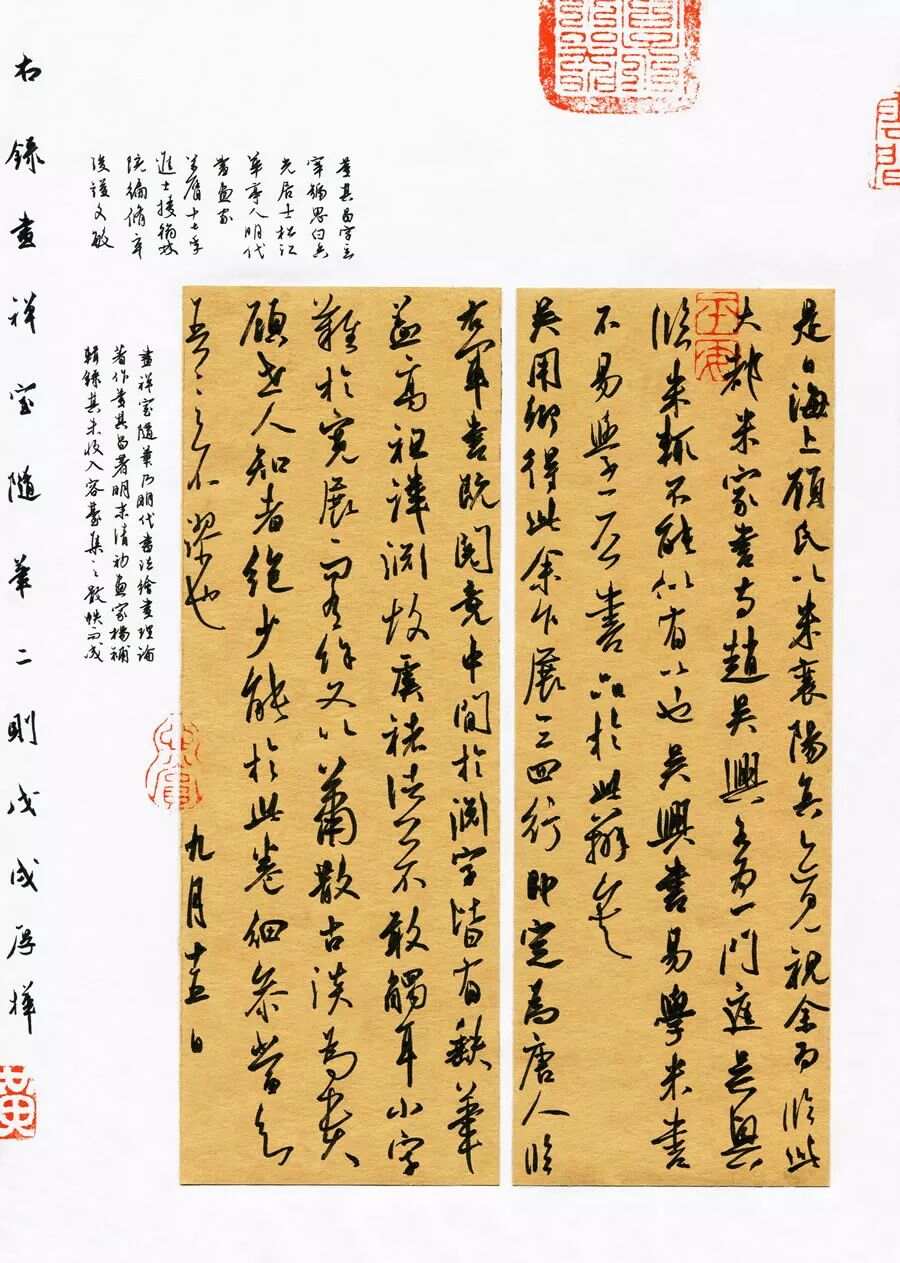 是日海上顧氏以米襄陽真迹見視余為臨此
大都米家書與趙吳興各為一門庭吳興
臨米輒不能似有以也吳興書易學米書
不易學二公書品於此辨矣
吳用卿得此余乍展三四行即定為唐人臨
右軍書既閱竟中間於淵字皆有缺筆
蓋高祖諱淵故虞褚諸公不敢觸耳小字
難於寬展而有餘又以蕭散古淡為貴
顧世人知者絕少能於此卷細參當知
吾言之不謬也
九月十五日
董其昌字玄
宰號思白又
先居士松江
華亭人明代
書畫家
萬曆十七年
進士授翰林
院編修卒
後諡文敏
畫禪室隨筆乃明代書法繪畫理論
著作董其昌著明末清初畫家楊補
輯錄其未收入容臺集之散帙而成
右錄畫禪室隨筆二則戊戌厚樺
黃